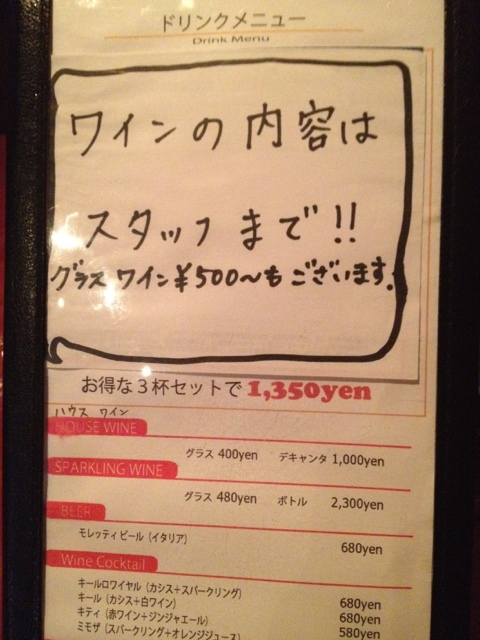 ドリンクメニュー
Drink Menu
ワインの内容は
スタッフまで!!
グラスワイン¥500〜もございます.
お得な3杯セットで 1,350yen
ハウス ワイン
HOUSE WINE
グラス 400yen デキャンタ 1,000yen
SPARKLING WINE
グラス 480yen ボトル 2,300yen
BEER
モレッティビール (イタリア)
680yen
Wine Cocktail
キールロワイヤル (カシス+スパークリング)
キール (カシス+白ワイン) 680yen
キティ (赤ワイン+ジンジャエール) 680yen
ミモザ (スパークリング+オレンジジュース) 580yen